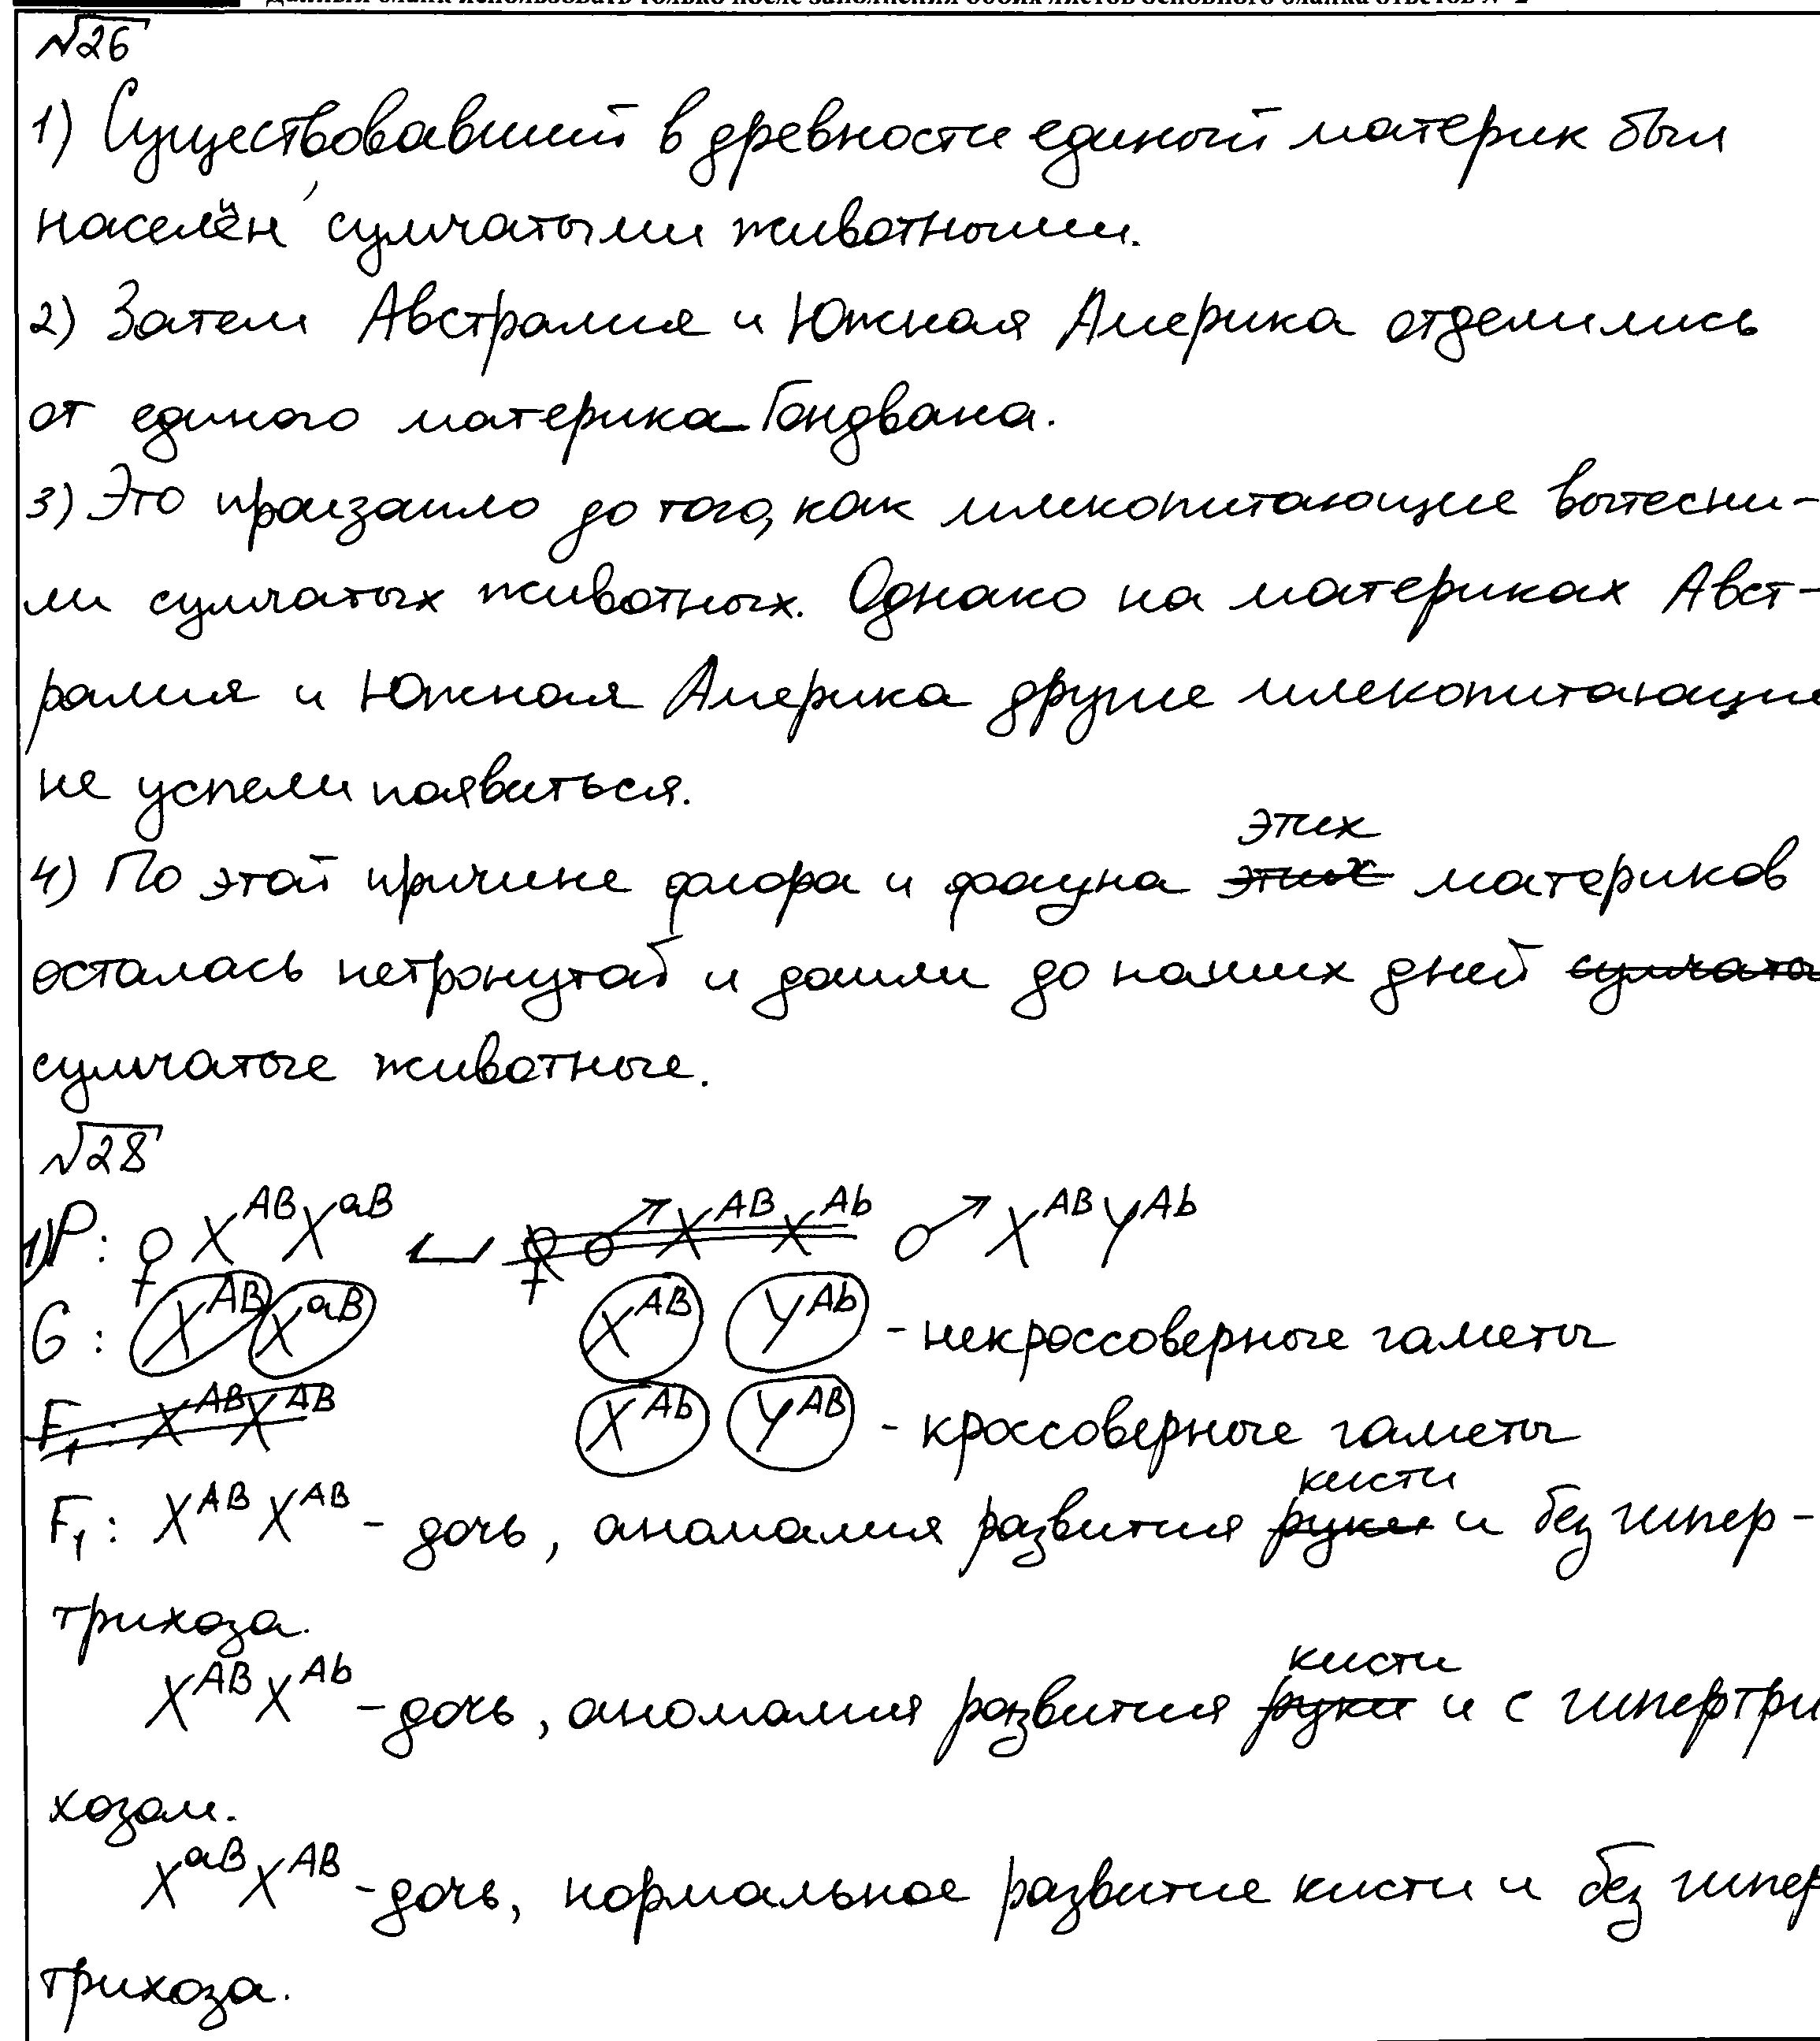 Данный бланк использовать только после заполнения обоих листов основного бланка ответов № 2
№26
1) Существовавший в древности единый материк был
населён сумчатыми животными.
2) Затем Австралия и Южная Америка отделились
от единого материка Гондвана.
3) Это произошло до того, как млекопитающие вытесни-
ли сумчатых животных. Однако на материках Авст-
ралия и Южная Америка другие млекопитающие
не успели появиться.
этих
4) По этой причине флора и фауна этих материков
осталась нетронутой и дошли до наших дней сумчаты
сумчатые животные.
№28
1) P: ♀ X^AB X^aB × ♀ ♂ X^AB X^Ab ♂ X^AB Y^Ab
G: X^AB X^aB X^AB Y^Ab - некроссоверные гаметы
F₁: X^AB X^AB X^Ab Y^AB - кроссоверные гаметы
кисти
F₁: X^AB X^AB - дочь, аномалия развития руки и без гипер-
трихоза.
кисти
X^AB X^Ab - дочь, аномалия развития руки и с гипертри
хозом.
X^aB X^AB - дочь, нормальное развитие кисти и без гипер
трихоза.